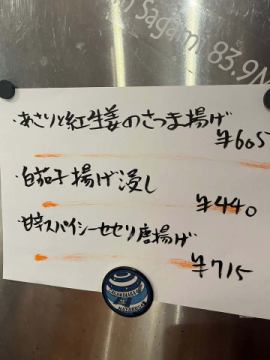 Sagami 83.9M
・あさりと紅生姜のさつま揚げ
¥605
・白茄子揚げ浸し
¥440
・甘辛スパイシーセセリ唐揚げ
¥715